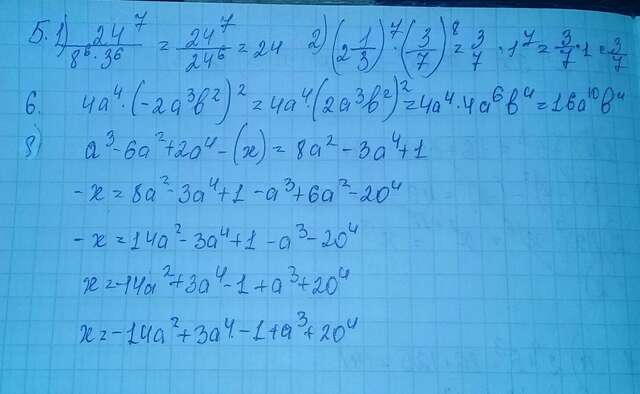 5. 1) 24⁷/(8⁶·3⁶) = 24⁷/24⁶ = 24 2) (2 1/3)⁷·(3/7)⁸ = 3/7·1⁷ = 3/7·1 = 3/7
6. 4a⁴·(-2a³b²)² = 4a⁴·(2a³b²)² = 4a⁴·4a⁶b⁴ = 16a¹⁰b⁴
8) a³-6a²+20⁴-(x) = 8a²-3a⁴+1
-x = 8a²-3a⁴+1-a³+6a²-20⁴
-x = 14a²-3a⁴+1-a³-20⁴
x = -14a²+3a⁴-1+a³+20⁴
x = -14a²+3a⁴-1+a³+20⁴